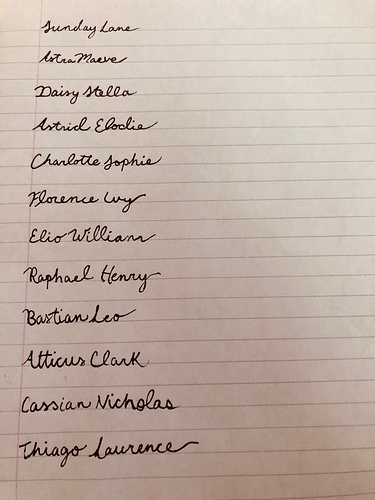 Sunday Lane
Astra Maeve
Daisy Stella
Astrid Elodie
Charlotte Sophie
Florence Ivy
Elio William
Raphael Henry
Bastian Leo
Atticus Clark
Cassian Nicholas
Thiago Laurence